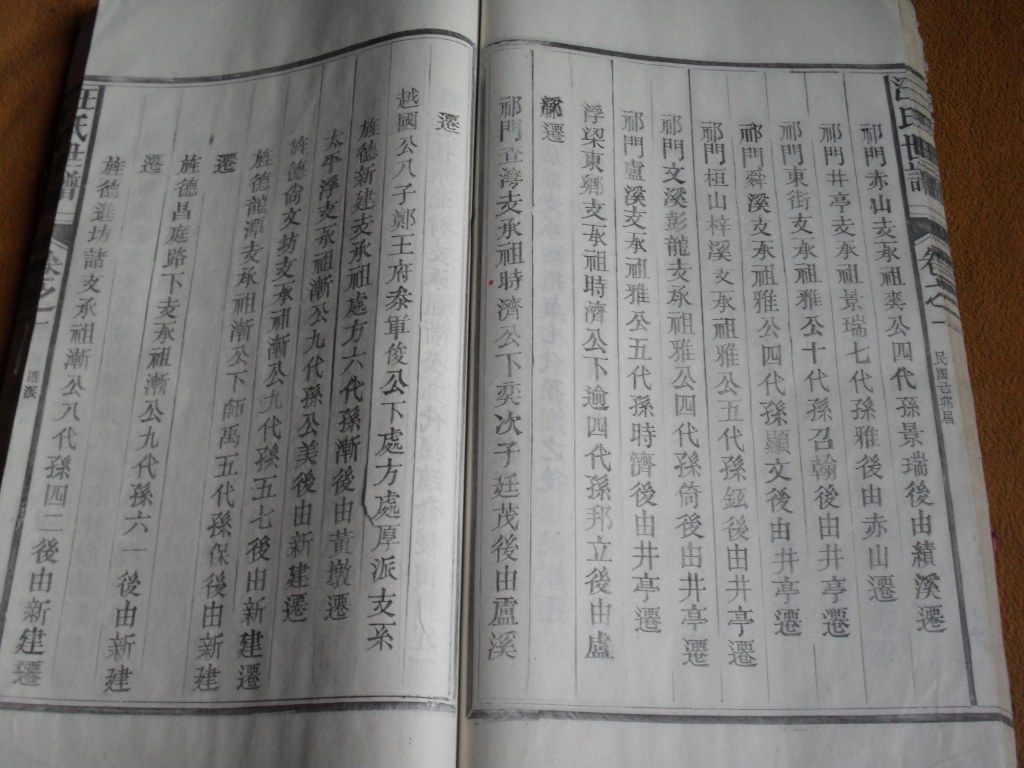 汪氏世譜
卷之一
祁門赤山支承祖奕公四代孫景瑞後由績溪遷
祁門井亭支承祖景瑞七代孫雅後由赤山遷
祁門東街支承祖雅公十代孫召翰後由井亭遷
祁門舜溪支承祖雅公四代孫顯文後由井亭遷
祁門桓山梓溪支承祖雅公五代孫鉉後由井亭遷
祁門文溪彭龍支承祖雅公四代孫倚後由井亭遷
祁門盧溪支承祖雅公五代孫時濟後由井亭遷
浮梁東鄉支承祖時濟公下逾四代孫邦立後由盧
溪遷
祁門查灣支承祖時濟公下奕次子廷茂後由盧溪
遷
越國公八子鄭王府泰軍俊公下處方處厚派支系
旌德新建支承祖處方六代孫漸後由黃墩遷
太平淨支承祖漸公九代孫公美後由新建遷
旌德尙文坊支承祖漸公九代孫五七後由新建遷
旌德龍潭支承祖漸公下師禹五代孫保後由新建
遷
旌德昌庭路下支承祖漸公九代孫六一後由新建
遷
旌德進坊諸支承祖漸公八代孫四二後由新建遷
汪氏世譜
卷之一
遷派